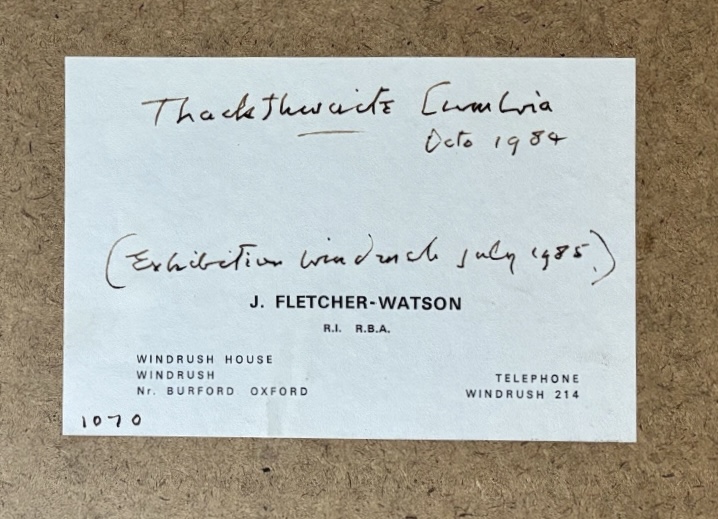 Thackthwaite Cumbria
Octo 1984
(Exhibition Windrush July 1985.)
J. FLETCHER-WATSON
R.I. R.B.A.
WINDRUSH HOUSE
WINDRUSH
Nr. BURFORD OXFORD
TELEPHONE
WINDRUSH 214
1070